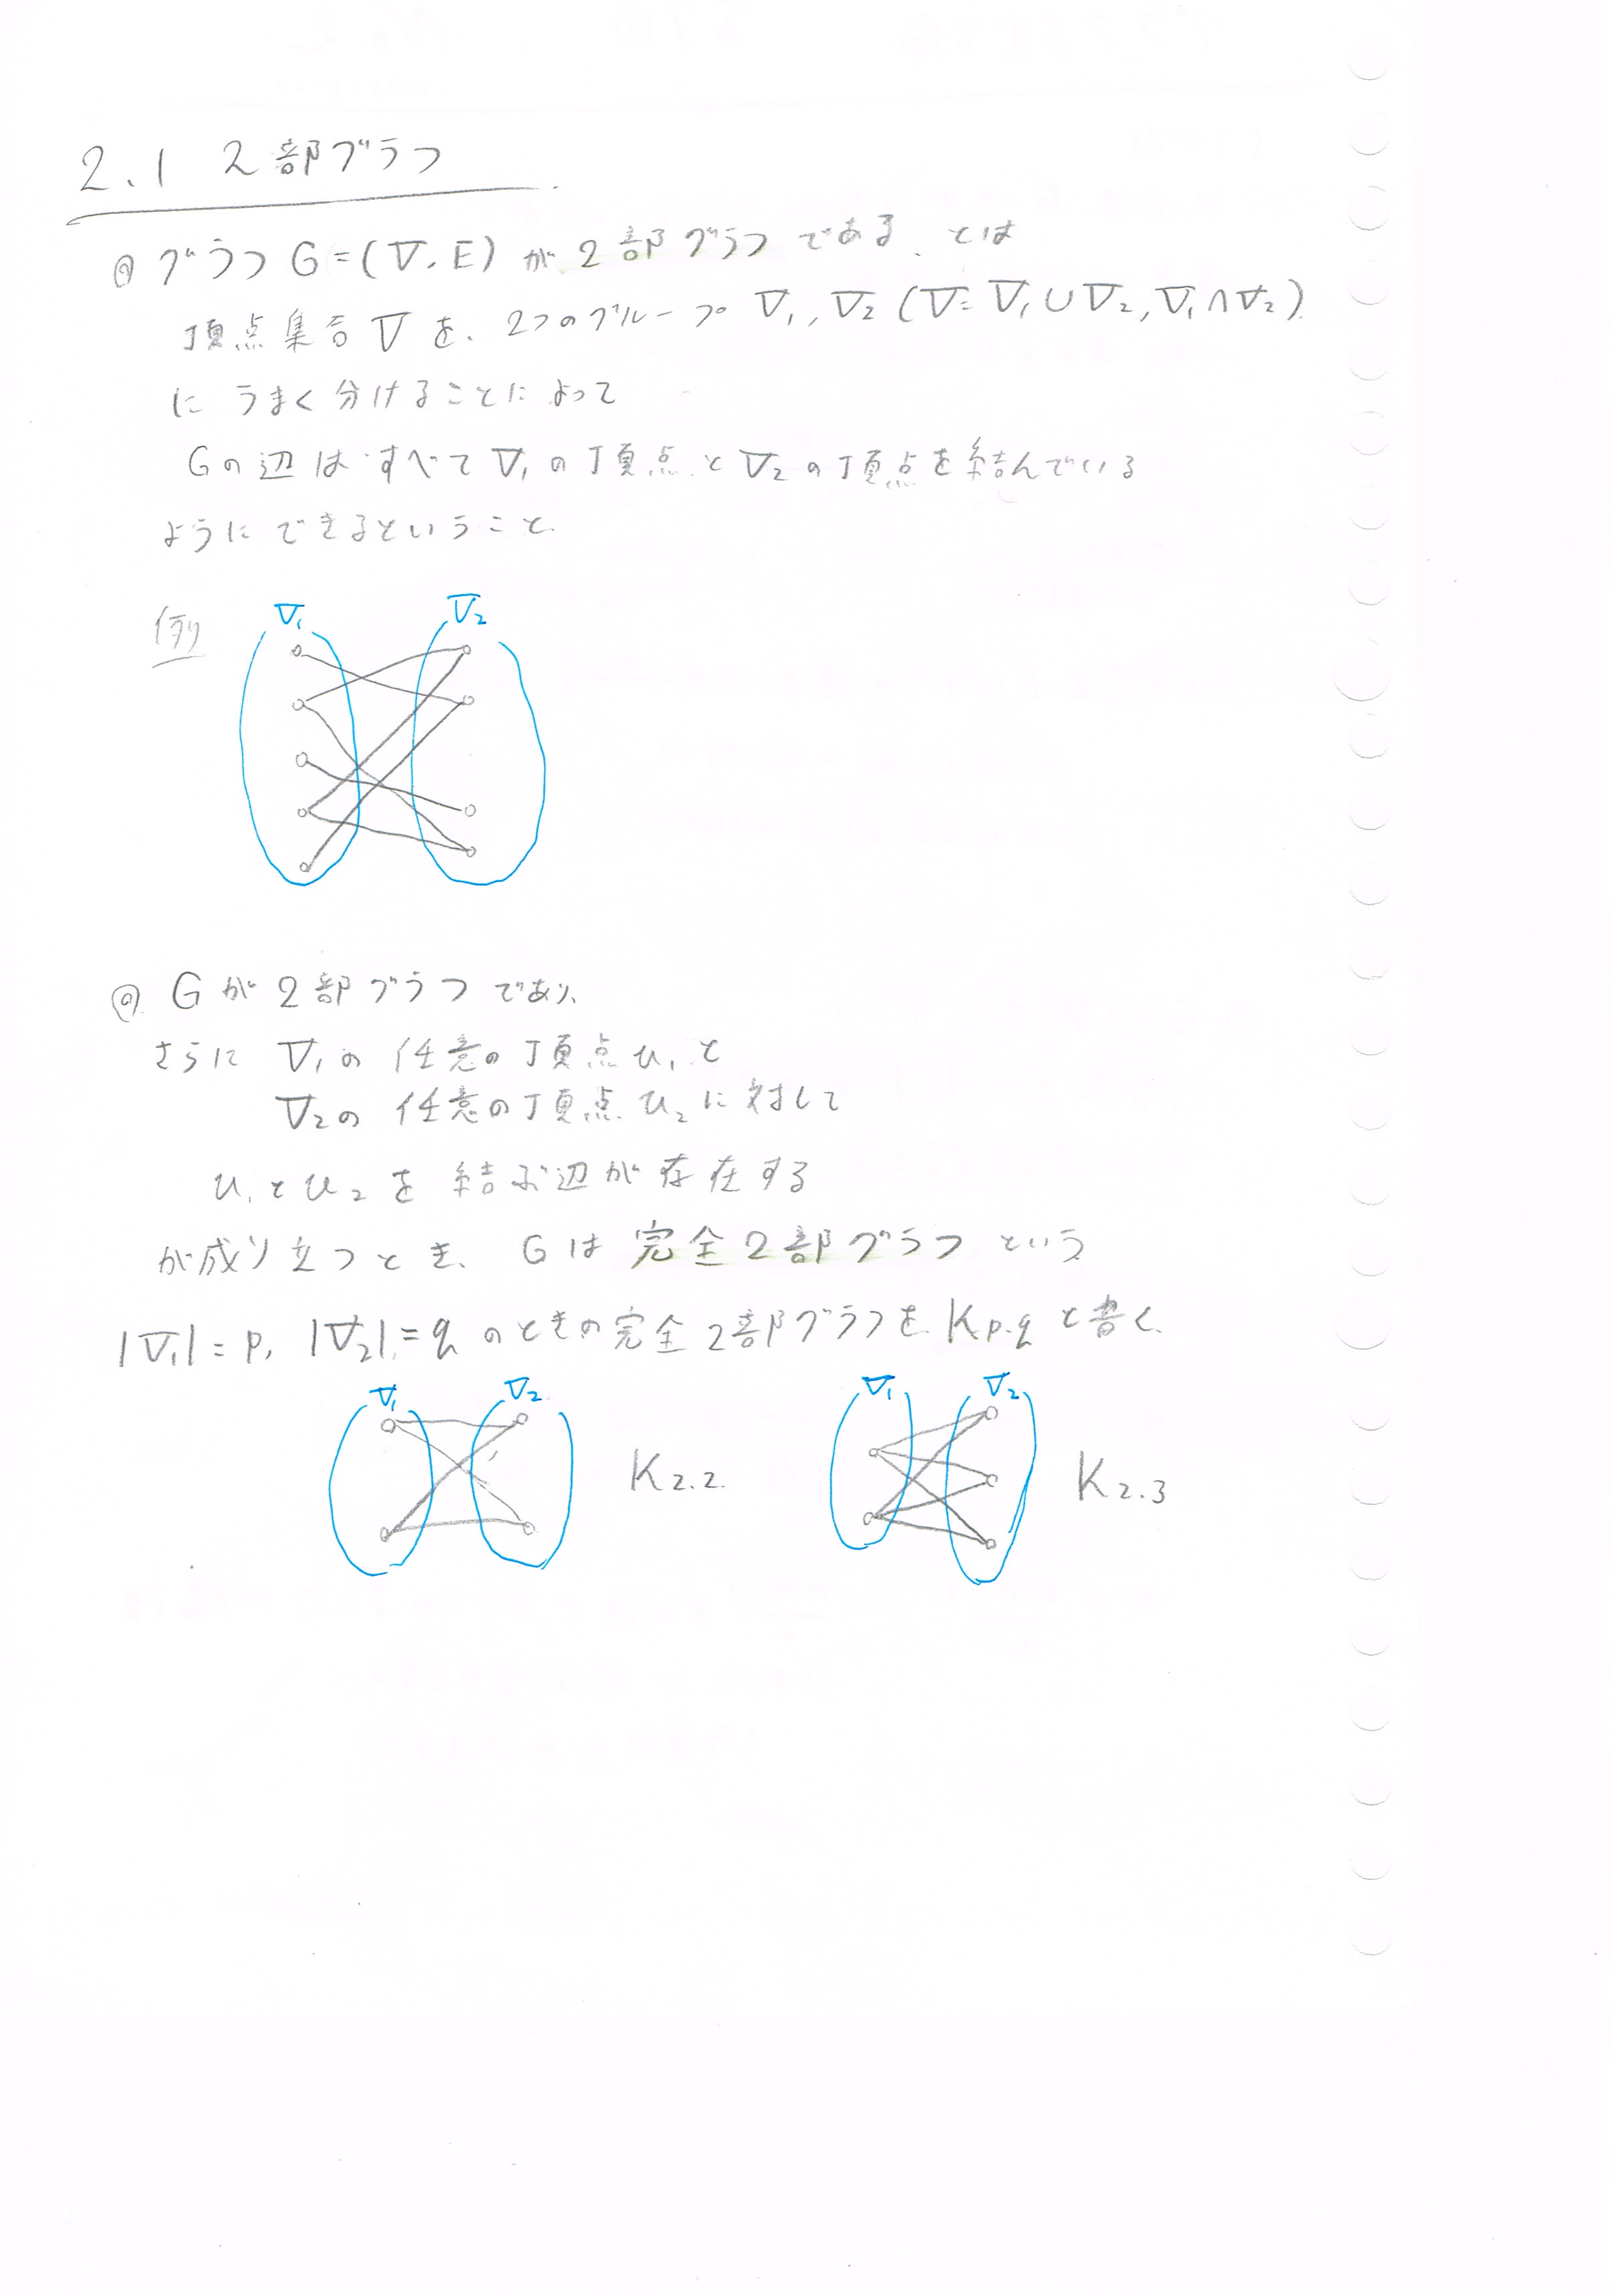 2.1 2部グラフ
◎ グラフ G=(V, E) が 2部グラフ である とは
頂点集合 V を、2つのグループ V₁, V₂ (V=V₁∪V₂, V₁∩V₂)
に うまく 分けることによって
Gの辺は すべて V₁の頂点と V₂の頂点を結んでいる
ようにできるということ.
例 V₁ V₂
◎ Gが2部グラフであり、
さらに V₁の 任意の頂点 u₁ と
V₂の 任意の頂点 u₂ に対して
u₁ と u₂ を 結ぶ辺が存在する
が成り立つとき、Gは 完全2部グラフ という
|V₁|=p, |V₂|=q のときの完全2部グラフを Kp.q と書く.
V₁ V₂ K2.2. V₁ V₂ K2.3